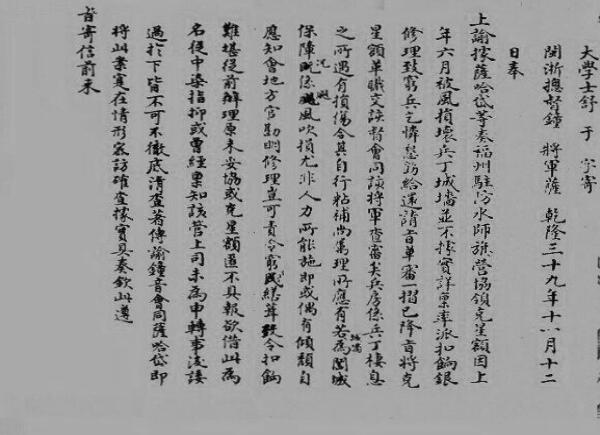 大學士舒 于 字寄
閩浙總督鐘 將軍薩 乾隆三十九年十一月十二
日奉
上諭據薩哈岱等奏福州駐防水師旗營協領克星額因上
年六月被風損壞兵丁城墻並不據實詳稟率派扣餉銀
修理致窮兵乞憐懇訪給還請旨革審一摺已降旨將克
星額革職交該督會同該將軍查審矣兵房係兵丁棲息
之所遇有損傷令其自行粘補尚屬理所應有若為閤城
保障況係颶風吹損尤非人力所能施即或偶有傾頹自
應知會地方官勘明修理豈可責令窮民繕葺致令扣餉
難堪從前辦理原未妥協或克星額匿不具報欲借此為
名從中染指抑或曾經稟知該營上司未為申轉事後諉
過於下皆不可不徹底清查著傳諭鐘音會同薩哈岱即
將此案實在情形察訪確查據實具奏欽此遵
旨寄信前來